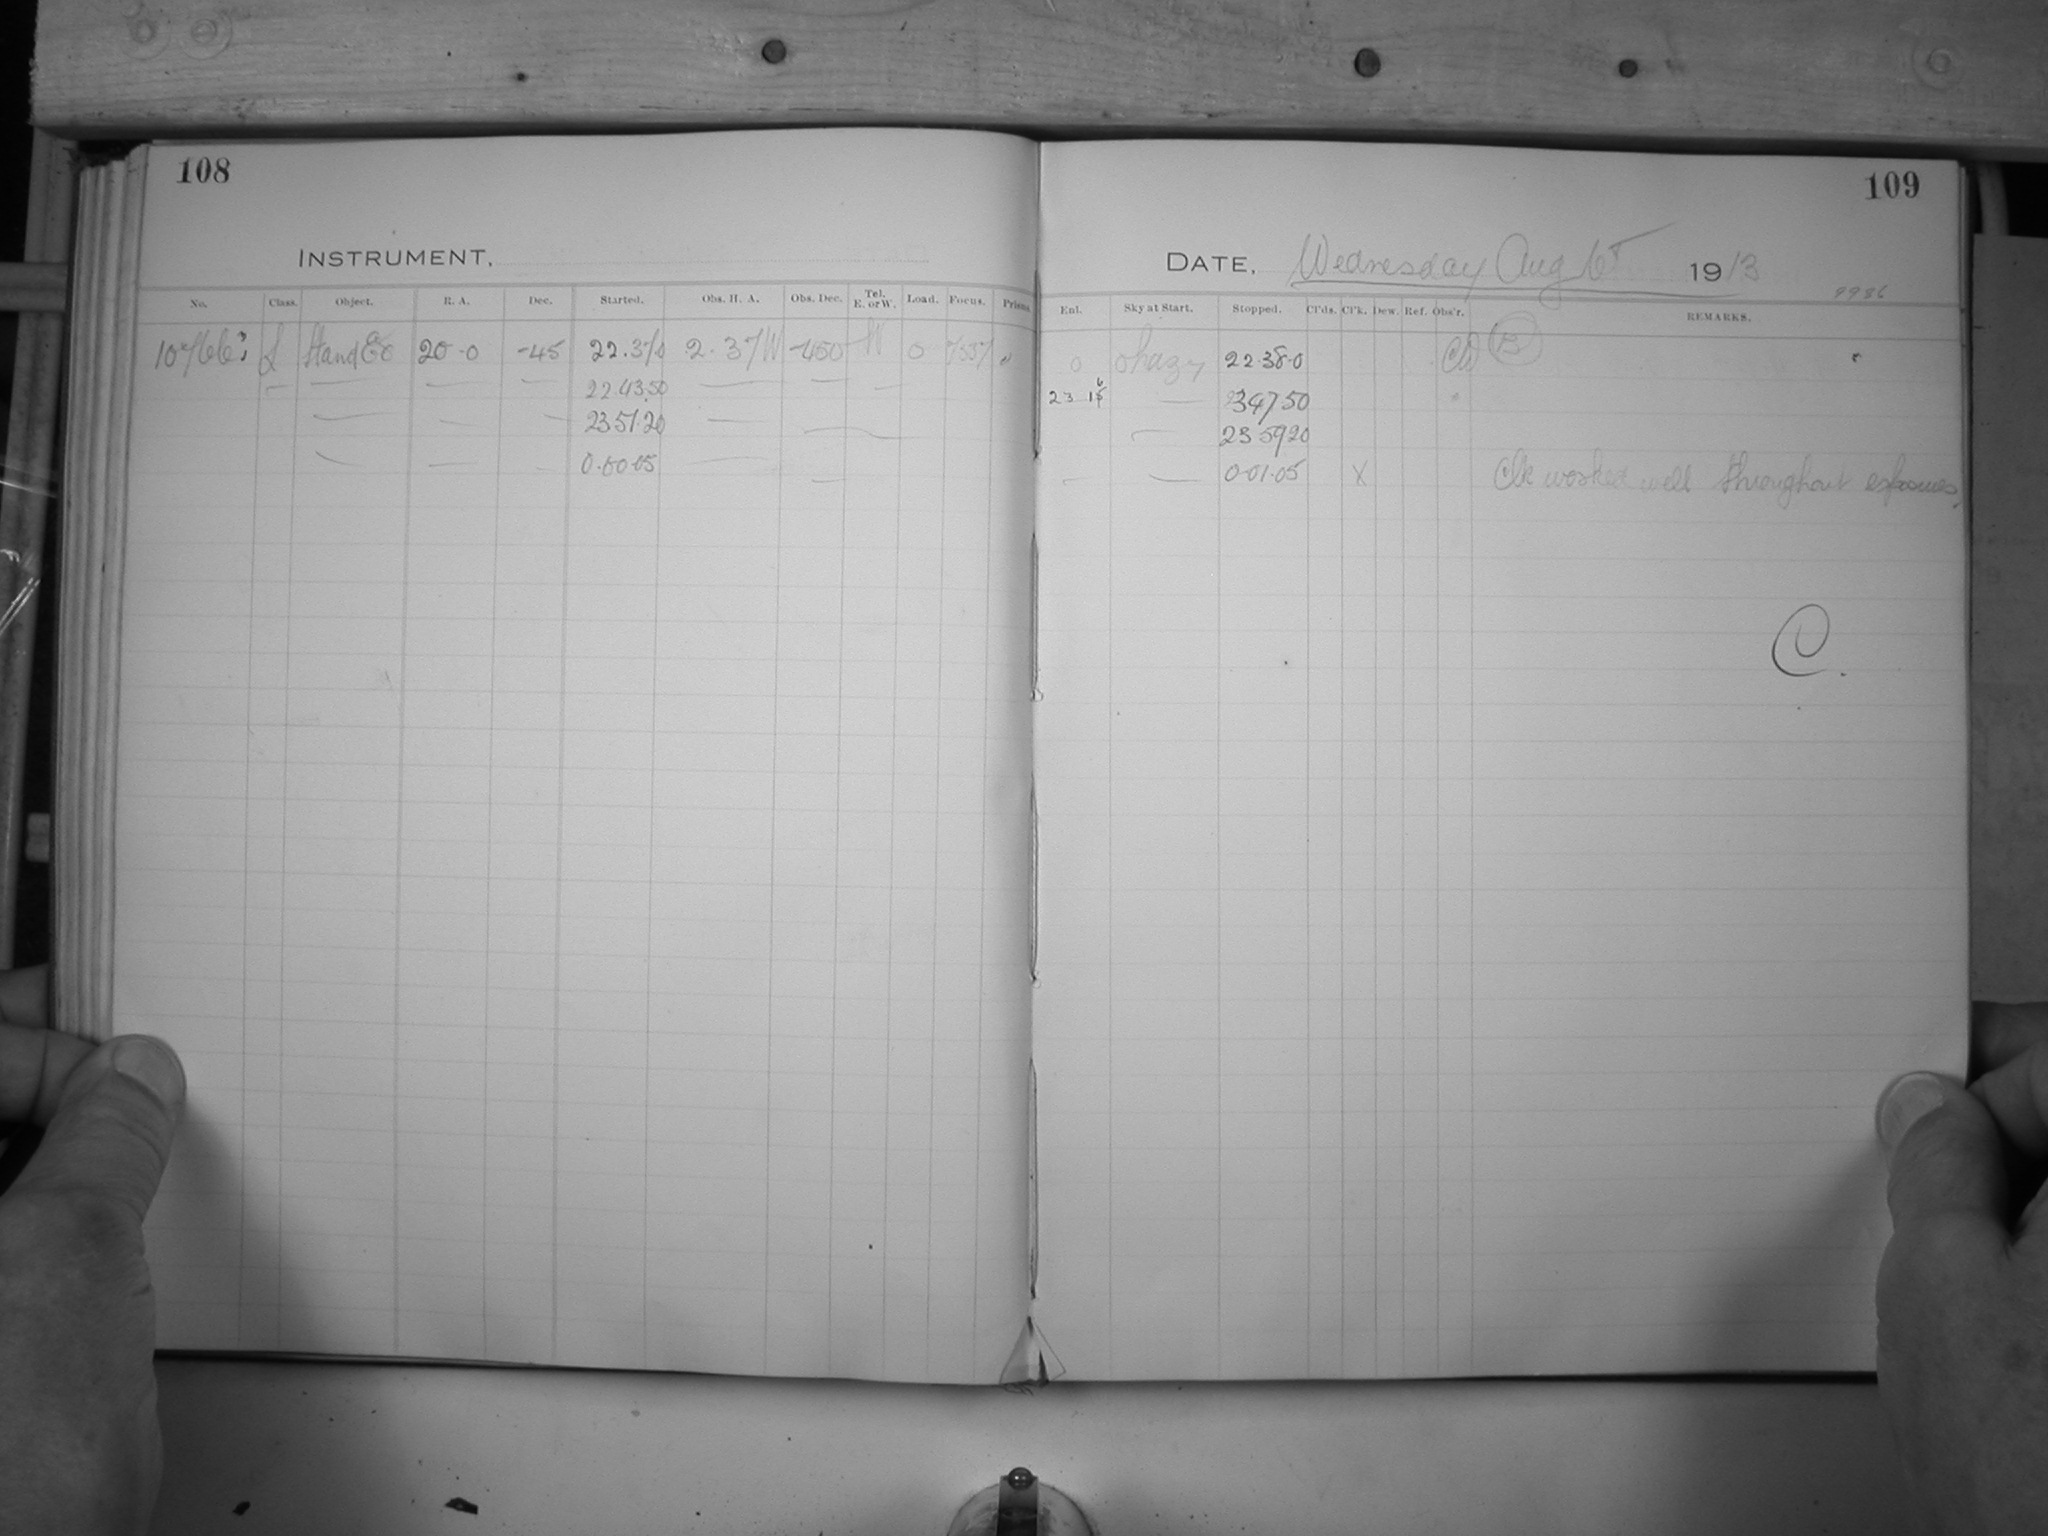 108
109
INSTRUMENT,
DATE, Wednesday Aug 6 1913
9986
No. Class. Object. R. A. Dec. Started. Obs. H. A. Obs. Dec. Tel. E. or W. Load. Focus. Prism.
Enl. Sky at Start. Stopped. Cl'ds. Cl'k. Dew. Ref. Obs'r. REMARKS.
L 20-0 -45 2.37W -450 W 0
0 hazy 22.38.0
22.43.50
23 16 347 50
23 51.20
23 59 20
0.00.05
0.01.05 X Clk worked well throughout exposures.
C.